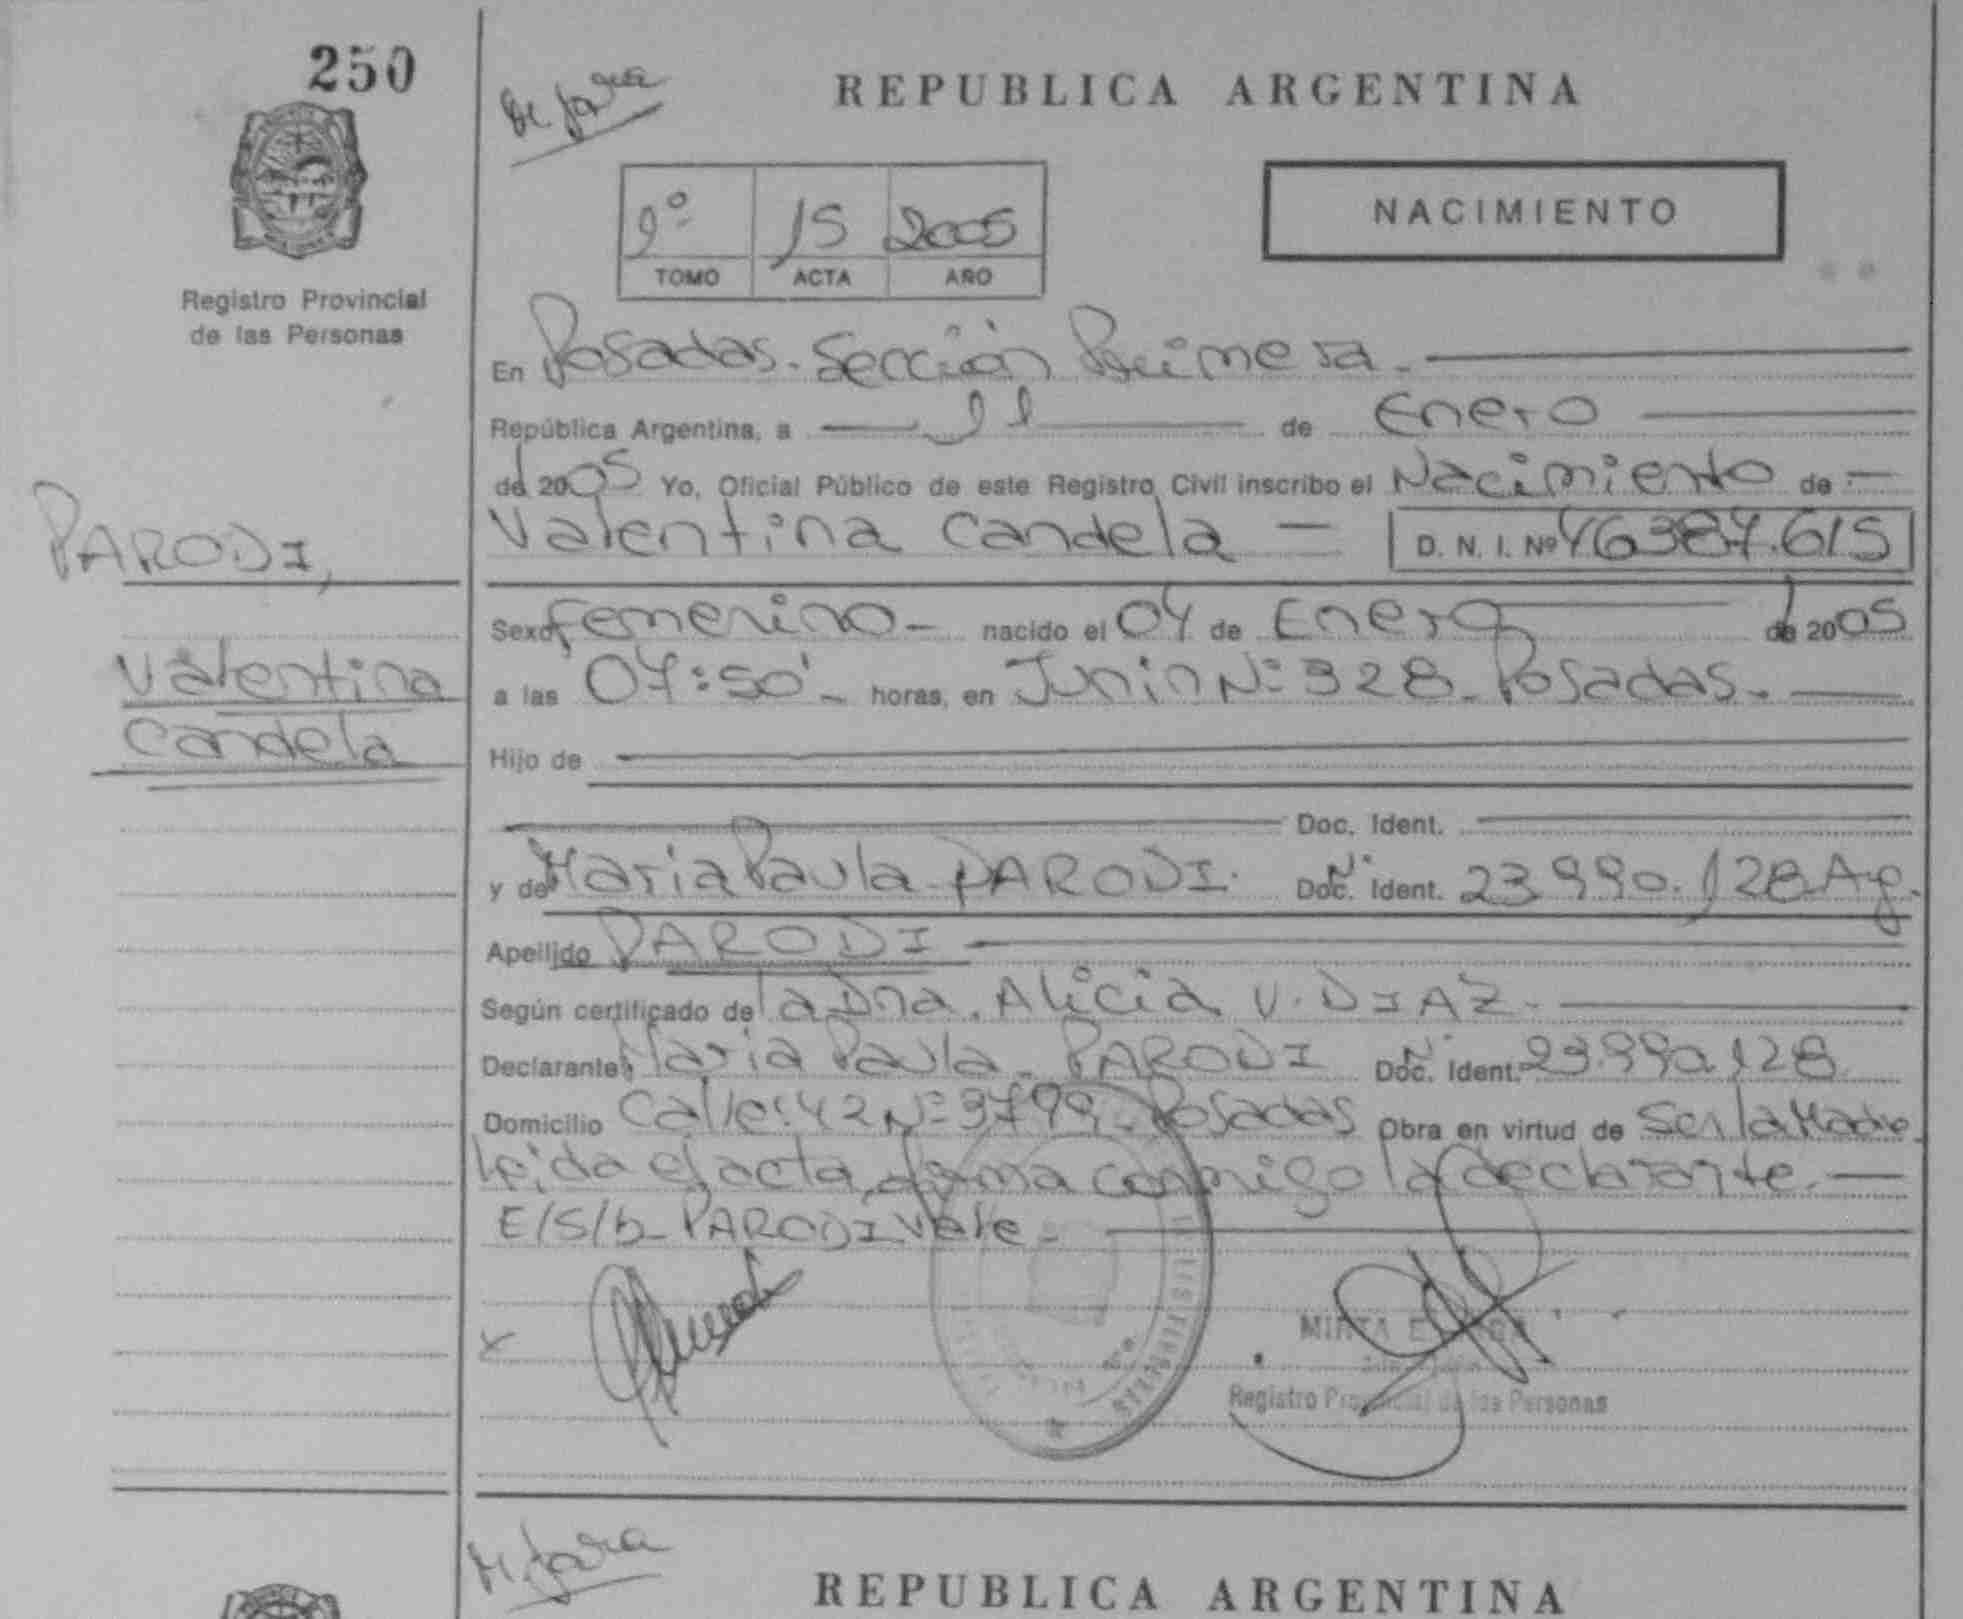 250
REPUBLICA ARGENTINA
Registro Provincial
de las Personas
1º 15 2005
TOMO ACTA AÑO
NACIMIENTO
En Posadas. Sección Primera.
República Argentina, a 11 de Enero
de 2005 Yo, Oficial Público de este Registro Civil inscribo el Nacimiento de
Valentina Candela D. N. I. Nº 46.387.615
PARODI,
Valentina
Candela
Sexo femenino nacido el 04 de Enero de 2005
a las 07:50' horas, en Junin Nº 328 Posadas.
Hijo de
Doc. Ident.
y de Maria Paula PARODI. Doc. Ident. Nº 23.990.128 Ag.
Apellido PARODI
Según certificado de la Dra. Alicia V. DIAZ.
Declarante: Maria Paula PARODI Doc. Ident. Nº 23.990.128
Domicilio Calle: 42 Nº 3799 Posadas Obra en virtud de ser la Madre
Leida el acta, firma conmigo la declarante.
E/S/b PARODI Vale.
MIRTA
Registro Provincial de las Personas
M. Jara
REPUBLICA ARGENTINA